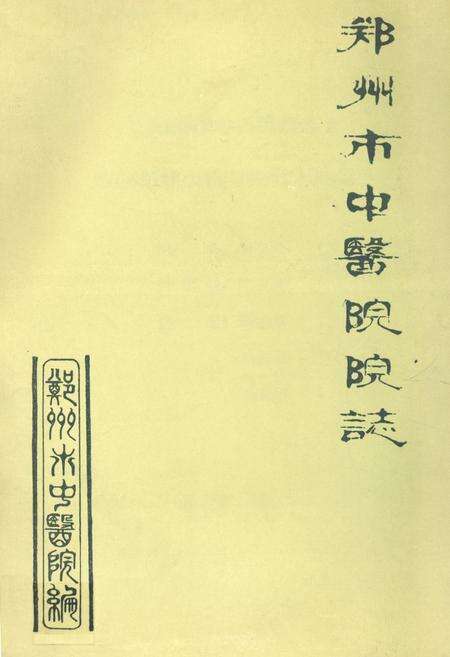 郑州市中醫院院誌
鄭州市中醫院編